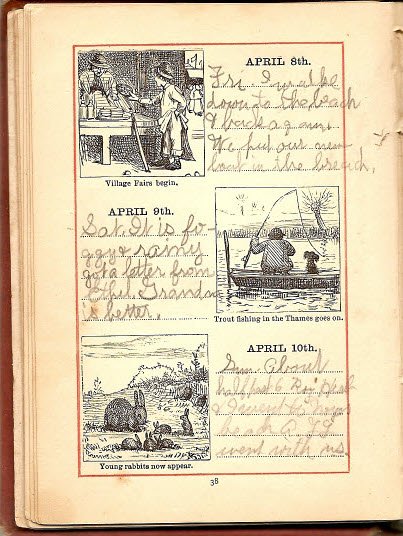 APRIL 8th.
Fri I walke
down to the beach
& back again.
We put our new
boat in the breach.
Village Fairs begin.
APRIL 9th.
Sat. It is fo-
ggy & rainy
got a letter from
Ethel. Grandm
is better.
Trout fishing in the Thames goes on.
APRIL 10th.
Sun. About
half past 6
& I went to
beach
went with us
Young rabbits now appear.
38